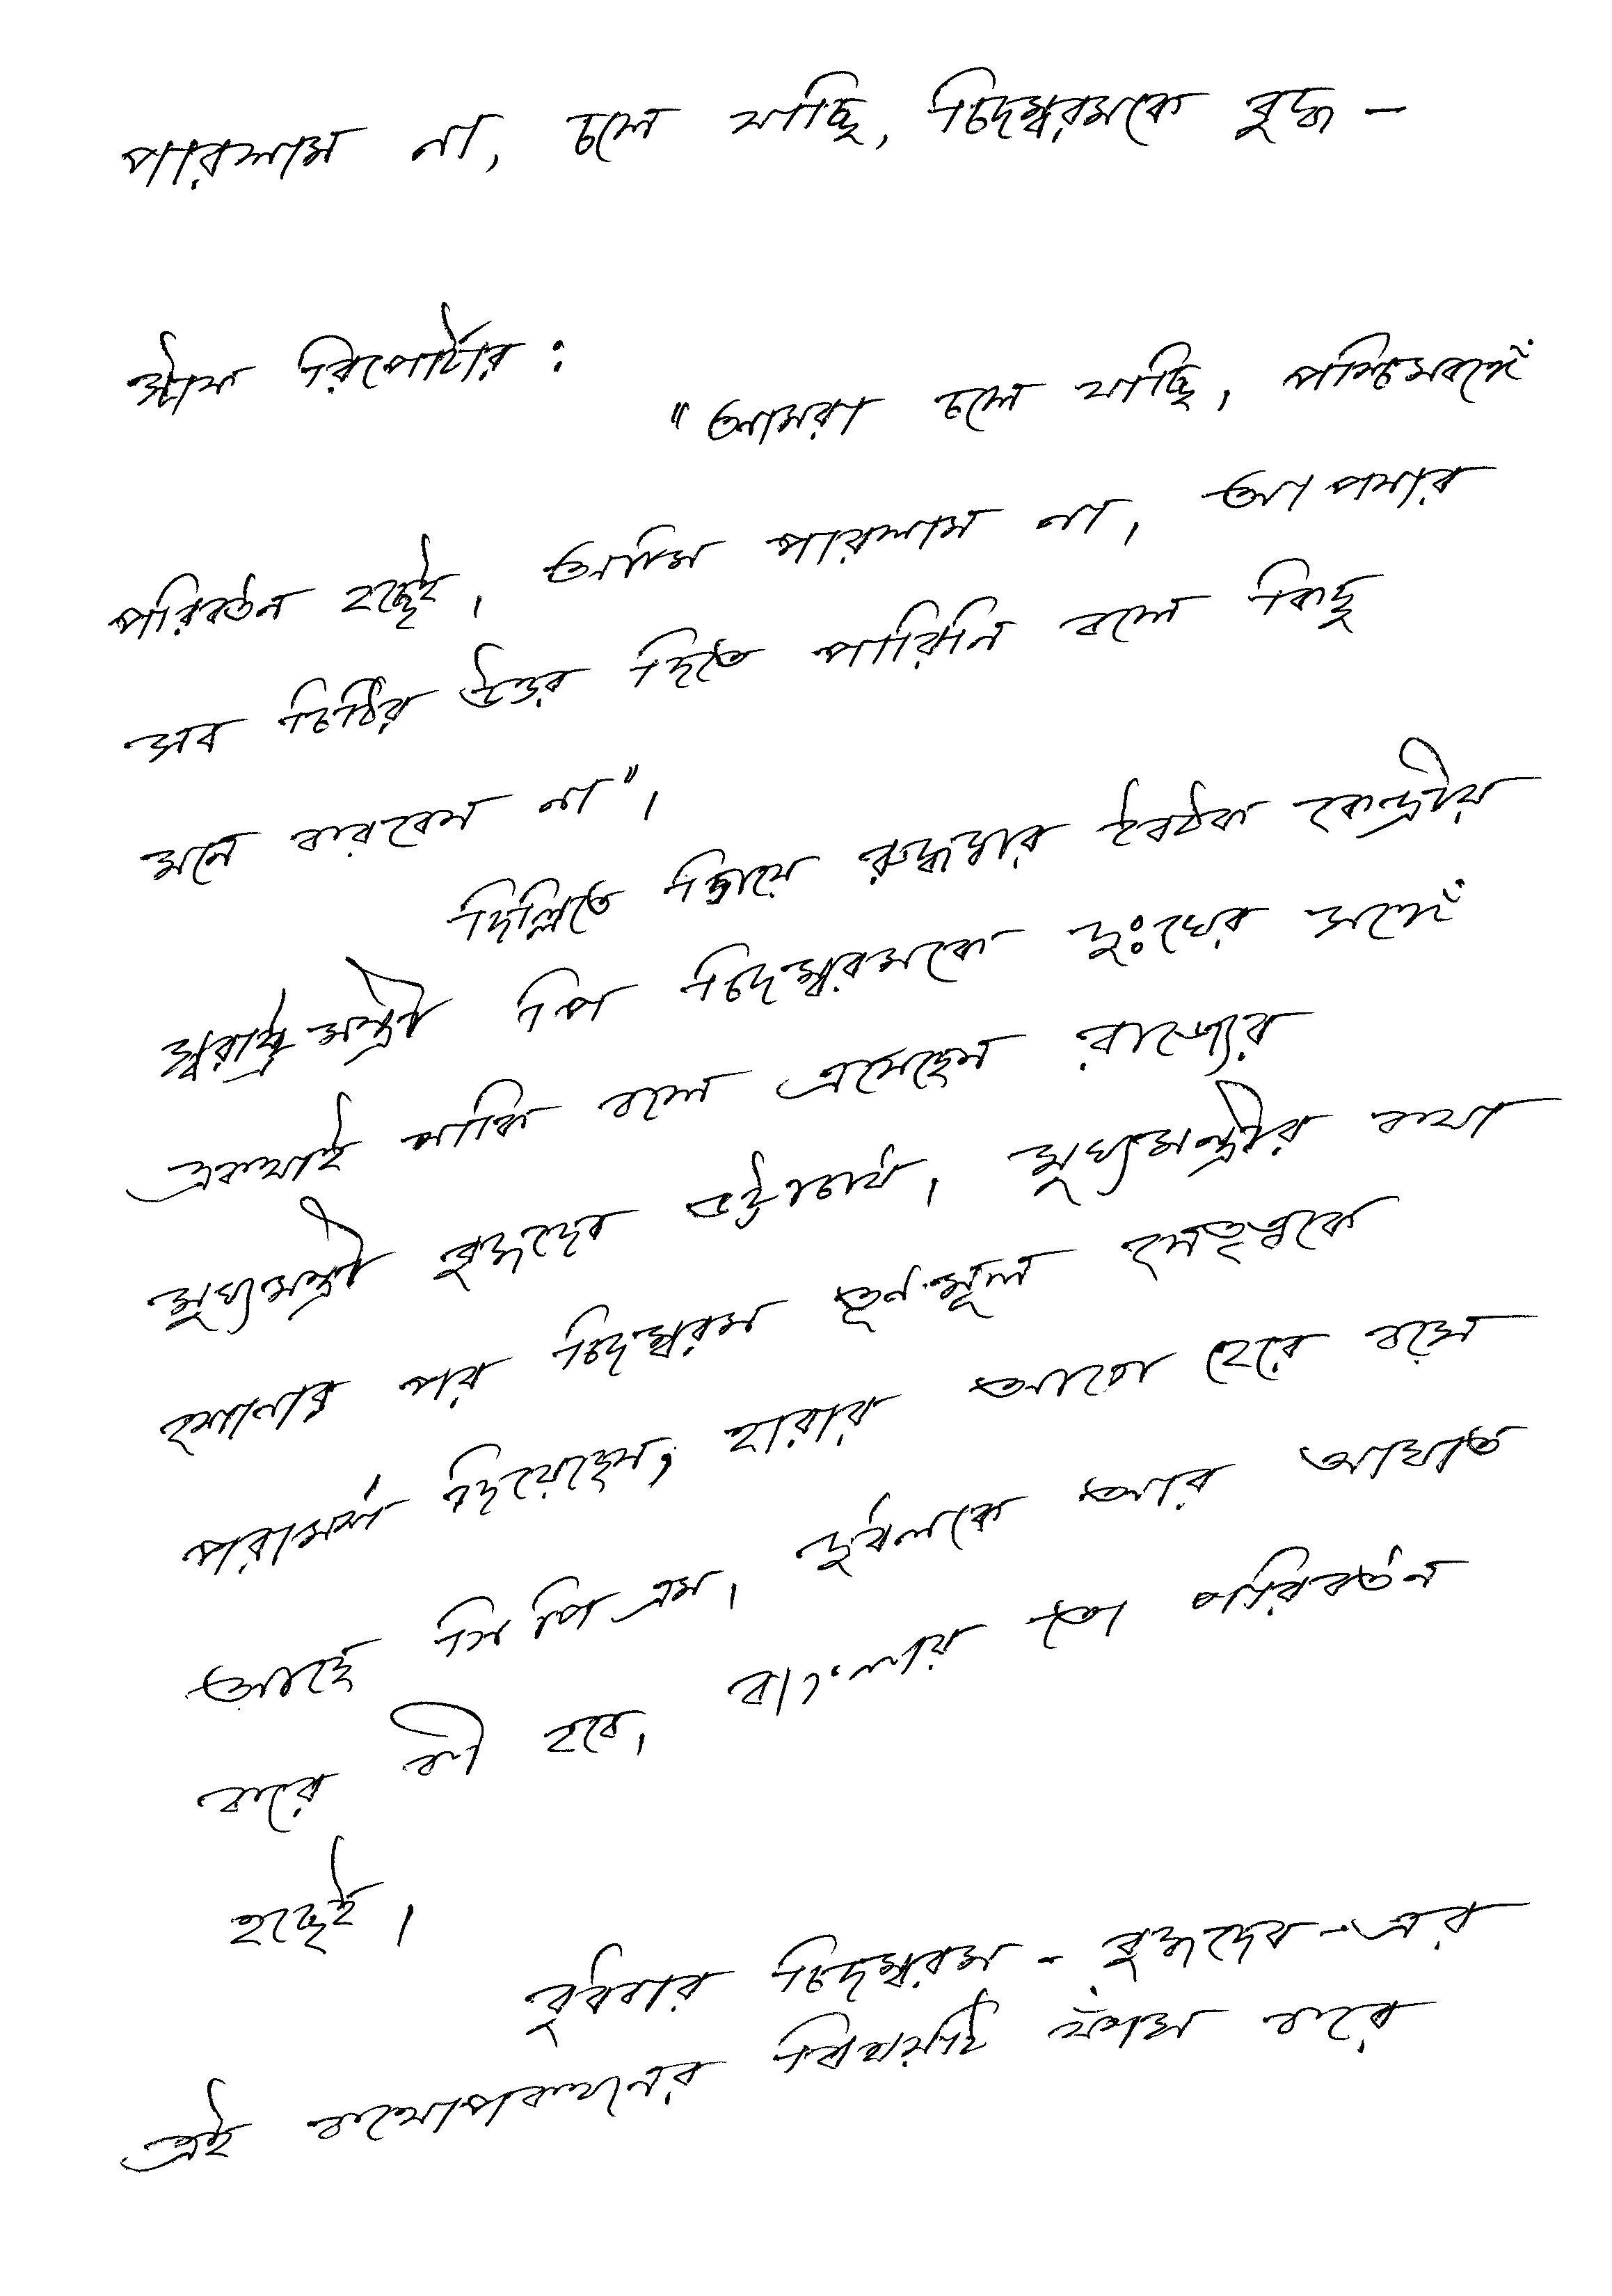 পারলাম না, চলে যাচ্ছি, চিদম্বরমকে বুদ্ধ –
স্টাফ রিপোর্টার :
"আমরা চলে যাচ্ছি, পশ্চিমবঙ্গে
পরিবর্তন হচ্ছেই। আমি পারলাম না। আপনার
সব চিঠির উত্তর দিতে পারিনি বলে কিছু
মনে করবেন না"।
দিল্লিতে গিয়ে রুদ্ধদ্বার বৈঠকে কেন্দ্রীয়
স্বরাষ্ট্রমন্ত্রী পি চিদম্বরমকে দুঃখের সঙ্গে
একথাই নাকি বলে এসেছেন রাজ্যের
মুখ্যমন্ত্রী বুদ্ধদেব ভট্টাচার্য। মুখ্যমন্ত্রীর কথা
শোনার পর চিদম্বরম তৃণমূল নেতৃত্বকে
পরামর্শ দিয়েছেন, হারার আগে হেরে বসে
আছে সিপিএম। দুর্বলকে আর আঘাত
করে কী হবে, বাংলায় তো পরিবর্তন
হচ্ছেই।
বুধবার চিদম্বরম - বুদ্ধদেব - এর
এই কথোপকথনের বিষয়টি ফাঁস করে